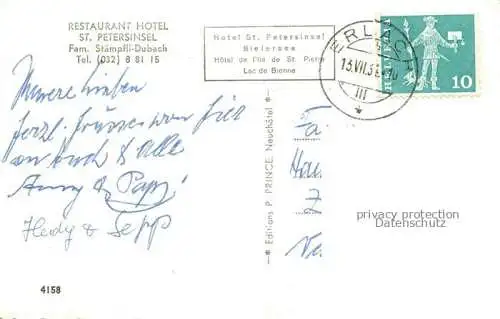 RESTAURANT HOTEL
ST. PETERSINSEL
Fam. Stämpfli-Dubach
Tel. (032) 8 81 15
Hotel St. Petersinsel
Bielersee
Hôtel de l'Ile de St. Pierre
Lac de Bienne
ERLACH
13.VII.
HELVETIA
10
Lieben
herzl. Grüsse von hier
an Euch & alle
Anny & Papi
Hedy & Sepp
-* Editions P. PRINCE, Neuchâtel *-
privacy protection
Datenschutz
4158